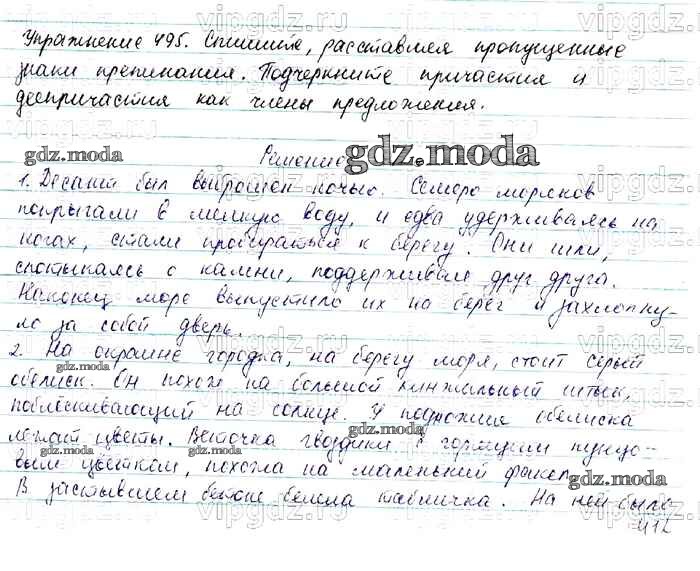 Упражнение 495. Спишите, расставляя пропущенные
знаки препинания. Подчеркните причастия и
деепричастия как члены предложения.
Решение
gdz.moda
gdz.moda
1. Десант был выброшен ночью. Семеро моряков
попрыгали в мелкую воду, и едва удерживаясь на
ногах, стали пробираться к берегу. Они шли,
спотыкаясь о камни, поддерживая друг друга.
Наконец море выпустило их на берег и захлопну-
ло за собой дверь.
gdz.moda
2. На окраине городка, на берегу моря, стоит серый
обелиск. Он похож на большой кинжальный штык,
поблёскивающий на солнце. У подножия обелиска
лежат цветы. Веточка гвоздики с горящим пунцо-
gdz.moda
вым цветком, похожа на маленький факел.
gdz.moda
В застывшем бетоне белела табличка. На ней было
412